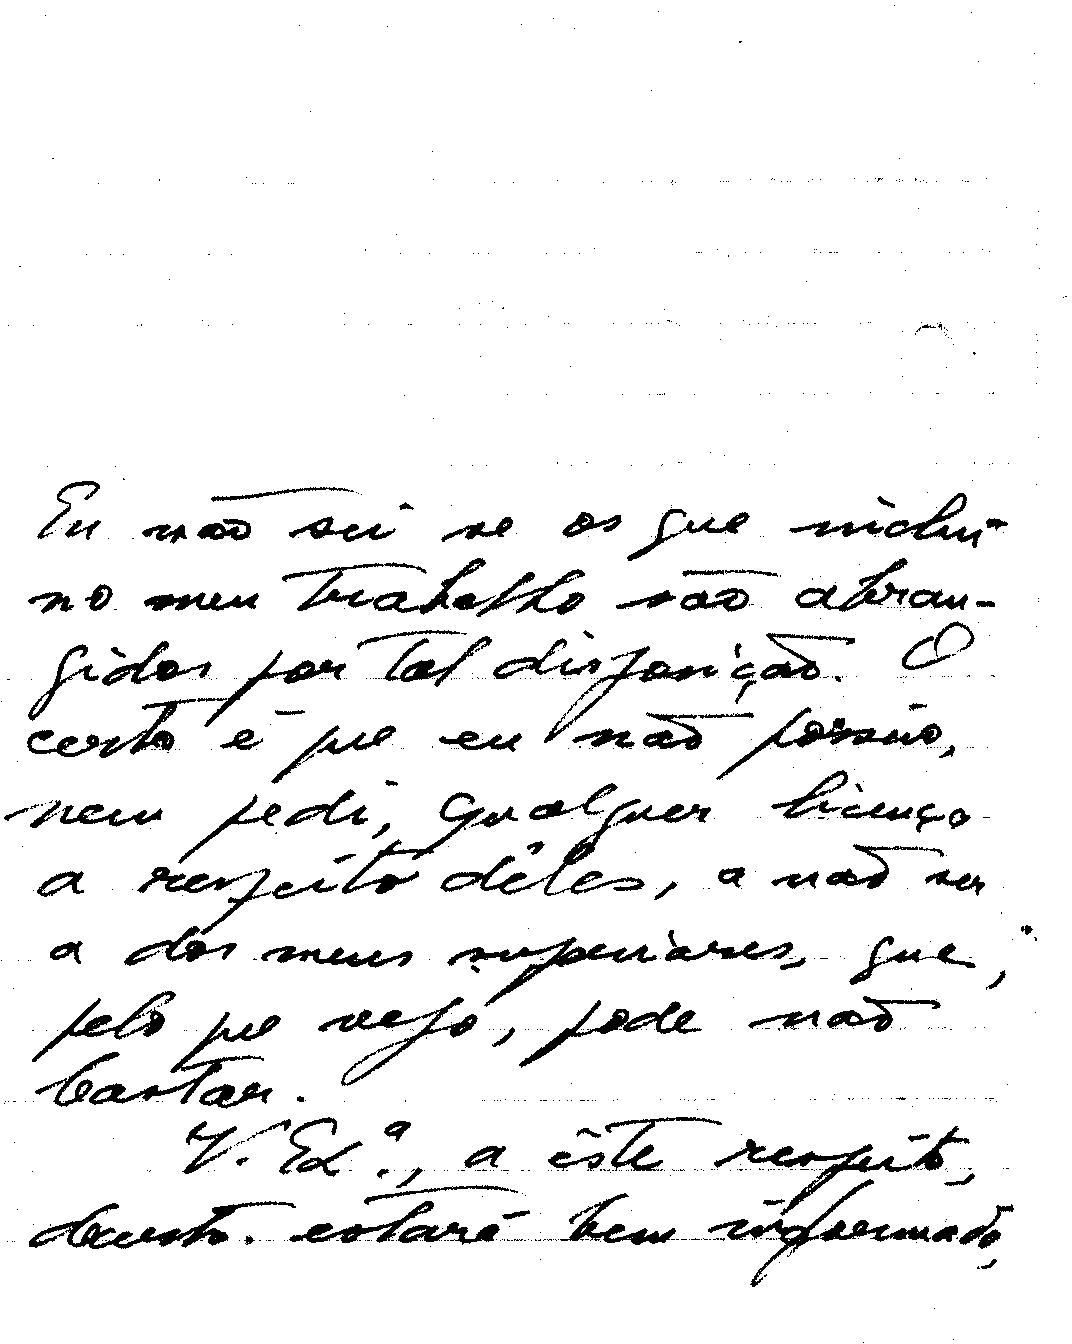 Eu não sei se os que incluí
no meu trabalho são abran-
gidos por tal disposição. O
certo é que eu não possuo,
nem pedi, qualquer licença
a respeito dêles, a não ser
a dos meus superiores, que,
pelo que vejo, pode não
bastar.
V. Ex.ª, a êste respeito,
decerto. estará bem informado,